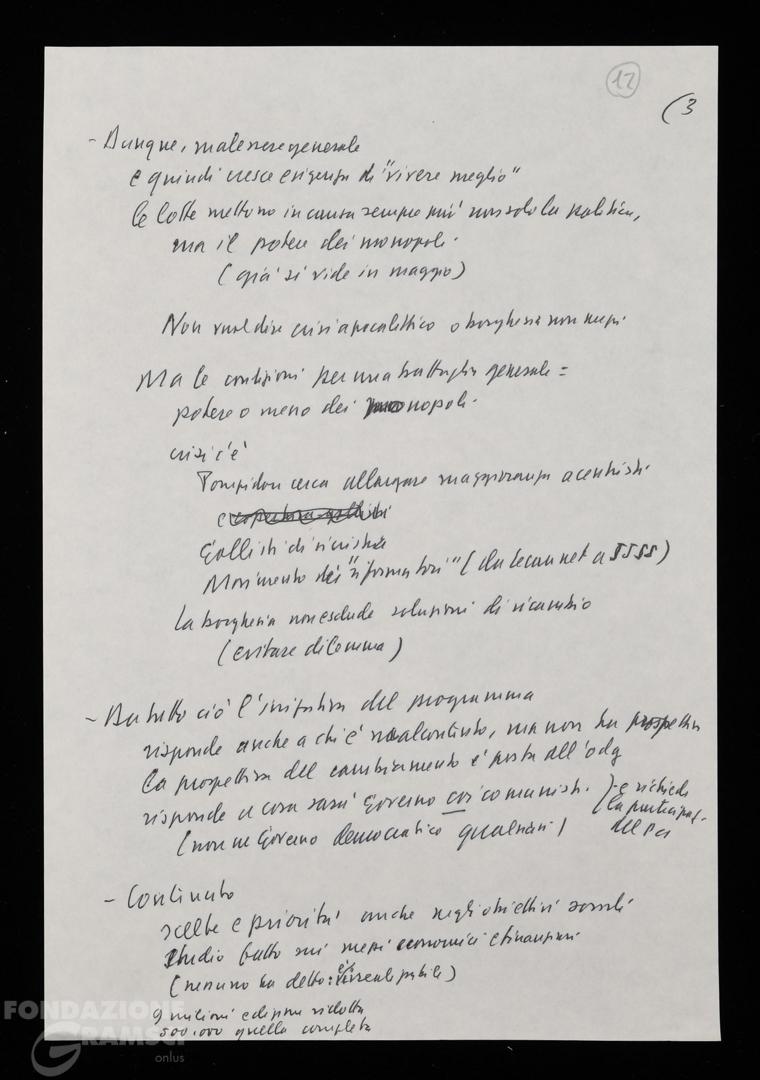 12
(3
- Dunque, malessere generale
e quindi cresce esigenza di "vivere meglio"
le lotte mettono in causa sempre più non solo la politica,
ma il potere dei monopoli.
(già si vide in maggio)
Non vuol dire crisi apocalittica o borghesia non
Ma le condizioni per una battaglia generale =
potere o meno dei monopoli.
crisi c'è
Pompidou cerca allargare maggioranza a centristi
e
Gollisti di sinistra
Movimento dei "riformatori" (da Lecanuet a SSSS)
La borghesia non esclude soluzioni di ricambio
(evitare dilemma)
- Da tutto ciò l'iniziativa del programma
risponde anche a chi è malcontento, ma non ha prospettiva
la prospettiva del cambiamento è posta all'odg
risponde a cosa sarà Governo coi comunisti.
(non un Governo democratico qualsiasi)
) - e richiede
la partecipaz.
del PCI
- Contenuto
scelte e priorità anche negli obiettivi sociali
studio fatto sui mezzi economici e finanziari
(nessuno ha detto: è irrealizzabile)
milioni edizione ridotta
500.000 quella completa
FONDAZIONE
GRAMSCI
onlus